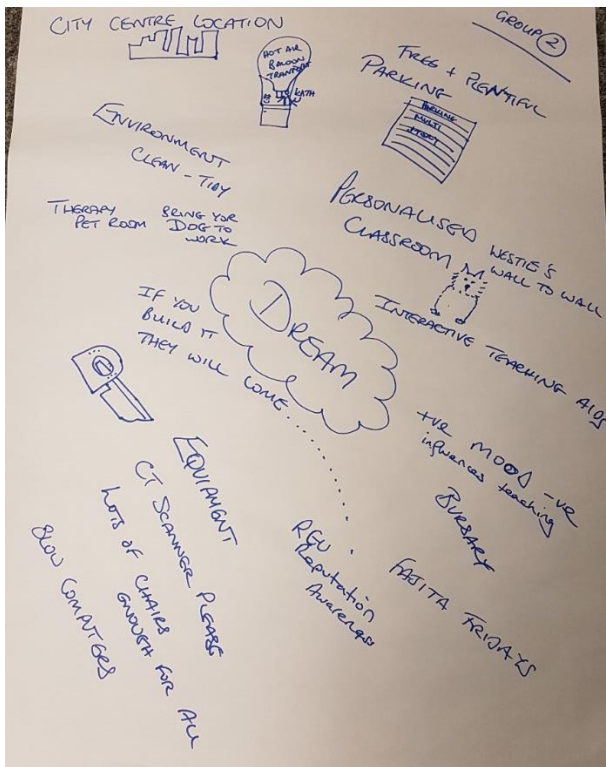 CITY CENTRE LOCATION
GROUP 2
HOT AIR
BALOON
TRANSPORT
KATH
FREE + PLENTIFUL
PARKING
PARKING
MULTI
STORY
ENVIRONMENT
CLEAN - TIDY
THERAPY
PET ROOM
BRING YOR
DOG TO
WORK
PERSONALISED
CLASSROOM
WESTIE'S
WALL TO WALL
INTERACTIVE TEACHING AIDS
DREAM
IF YOU
BUILD IT
THEY WILL COME........
+VE MOOD -VE
influences teaching
BURSARY
FAJITA FRIDAYS
REU
Reputation
Awareness
EQUIPMENT
CT SCANNER PLEASE
LOTS OF CHAIRS
ENOUGH FOR ALL
SLOW COMPUTERS